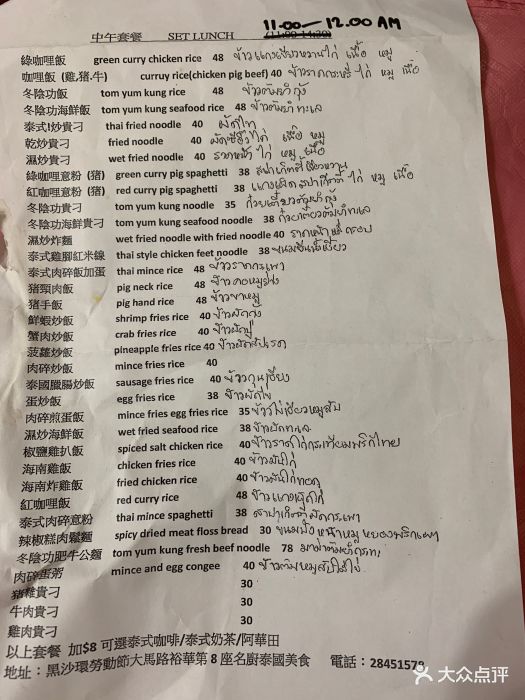 11.00 — 12.00 AM
中午套餐 SET LUNCH (11:00-14:30)
綠咖哩飯 green curry chicken rice 48 ข้าวแกงเขียวหวานไก่ เนื้อ หมู
咖哩飯 (雞,猪,牛) curruy rice(chicken pig beef) 40 ข้าวราดกะหรี่ ไก่ หมู เนื้อ
冬陰功飯 tom yum kung rice 48 ข้าวต้มยำกุ้ง
冬陰功海鮮飯 tom yum kung seafood rice 48 ข้าวต้มยำทะเล
泰式炒貴刁 thai fried noodle 40 ผัดไท
乾炒貴刁 fried noodle 40 ผัดซีอิ๊วไก่ เนื้อ หมู
濕炒貴刁 wet fried noodle 40 ราดหน้าไก่ หมู เนื้อ
綠咖哩意粉 (猪) green curry pig spaghetti 38
紅咖哩意粉 (猪) red curry pig spaghetti 38 ไก่ หมู เนื้อ
冬陰功貴刁 tom yum kung noodle 35 ก๋วยเตี๋ยวต้มยำกุ้ง
冬陰功海鮮貴刁 tom yum kung seafood noodle 38 ก๋วยเตี๋ยวต้มยำทะเล
濕炒炸麵 wet fried noodle with fried noodle 40 ราดหน้าหมี่กรอบ
泰式雞腳紅米線 thai style chicken feet noodle 38
泰式肉碎飯加蛋 thai mince rice 48 ข้าวราดกระเพา
猪頸肉飯 pig neck rice 48 ข้าวคอหมูย่าง
猪手飯 pig hand rice 48 ข้าวขาหมู
鮮蝦炒飯 shrimp fries rice 40 ข้าวผัดกุ้ง
蟹肉炒飯 crab fries rice 40 ข้าวผัดปู
菠蘿炒飯 pineapple fries rice 40 ข้าวผัดสับปะรด
肉碎炒飯 mince fries rice 40
泰國臘腸炒飯 sausage fries rice 40 ข้าวกุนเชียง
蛋炒飯 egg fries rice 38 ข้าวผัดไข่
肉碎煎蛋飯 mince fries egg fries rice 35 ข้าวไข่เจียวหมูสับ
濕炒海鮮飯 wet fried seafood rice 38 ข้าวผัดทะเล
椒鹽雞扒飯 spiced salt chicken rice 40 ข้าวราดไก่กระเทียมพริกไทย
海南雞飯 chicken fries rice 40 ข้าวมันไก่
海南炸雞飯 fried chicken rice 40 ข้าวมันไก่ทอด
紅咖哩飯 red curry rice 48 ข้าวแกงเผ็ดไก่
泰式肉碎意粉 thai mince spaghetti 38 สปาเก็ตตี้ผัดกระเพา
辣椒糕肉鬆麵 spicy dried meat floss bread 30 ขนมปังหน้าหมูหยองพริกเผา
冬陰功肥牛公麵 tom yum kung fresh beef noodle 78
肉碎蛋粥 mince and egg congee 40 ข้าวต้มหมูสับใส่ไข่
猪雜貴刁 30
牛肉貴刁 30
雞肉貴刁 30
以上套餐 加$8 可選泰式咖啡/泰式奶茶/阿華田
地址：黑沙環勞動節大馬路裕華第8座名厨泰國美食 電話：28451578
大众点评